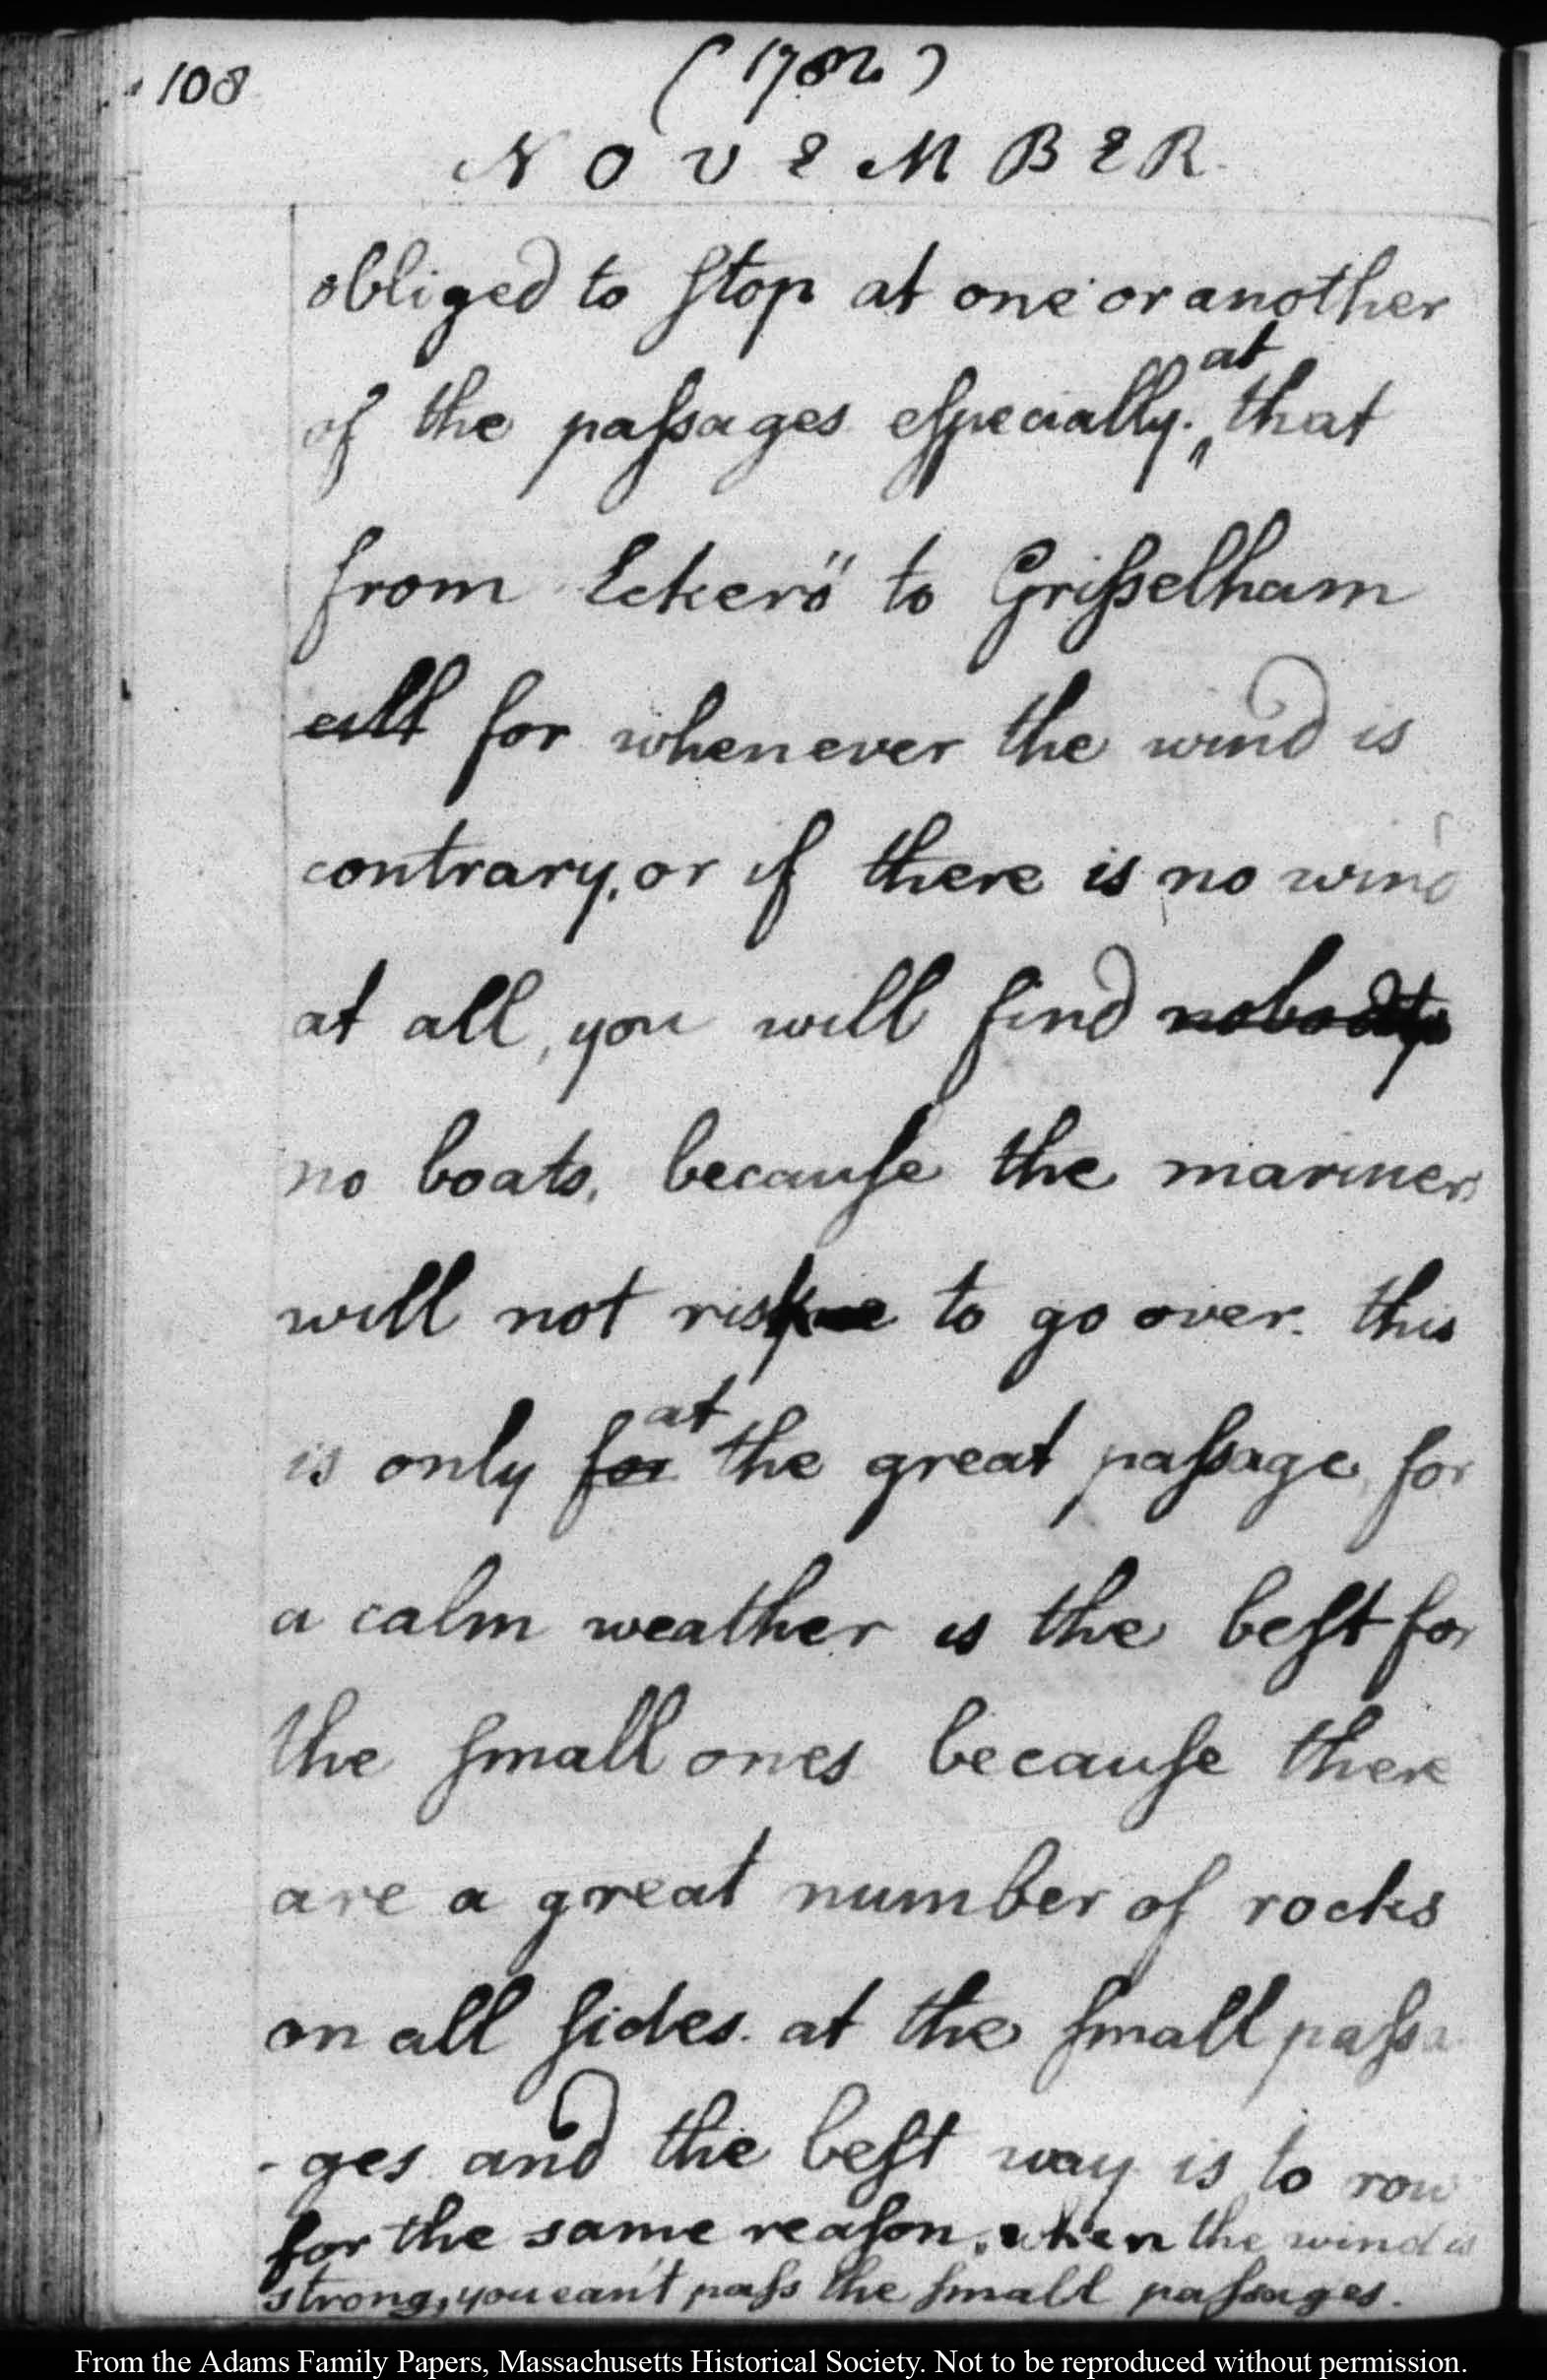 108
(1782)
NOVEMBER.
obliged to ſtop at one or another
of the paſsages eſpecially. at that
from Eckerö to Griſselham
for whenever the wind is
contrary, or if there is no wind
at all, you will find nobody
no boats, becauſe the mariners
will not risk to go over. this
is only for at the great paſsage, for
a calm weather is the beſt for
the ſmall ones becauſe there
are a great number of rocks
on all ſides. at the ſmall paſsa
-ges and the beſt way is to row
for the same reaſon. when the wind is
strong, you can't paſs the ſmall paſsages.
From the Adams Family Papers, Massachusetts Historical Society. Not to be reproduced without permission.